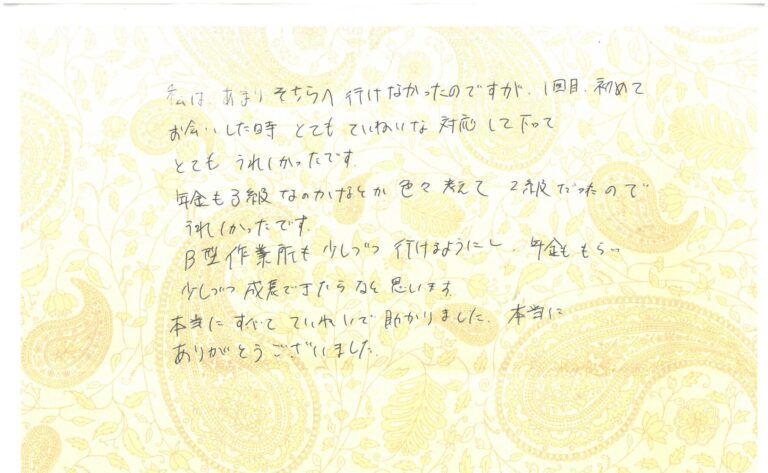 私は、あまりそちらへ行けなかったのですが、1回目、初めて
お会いした時 とても ていねいな 対応 して下って
とても うれしかったです。
年金も3級なのかなとか 色々考えて 2級だったので
うれしかったです。
B型作業所も少しづつ 行けるようにし、年金ももらい
少しづつ 成長できたらなと思います。
本当に すべて ていねいで 助かりました。本当に
ありがとうございました。